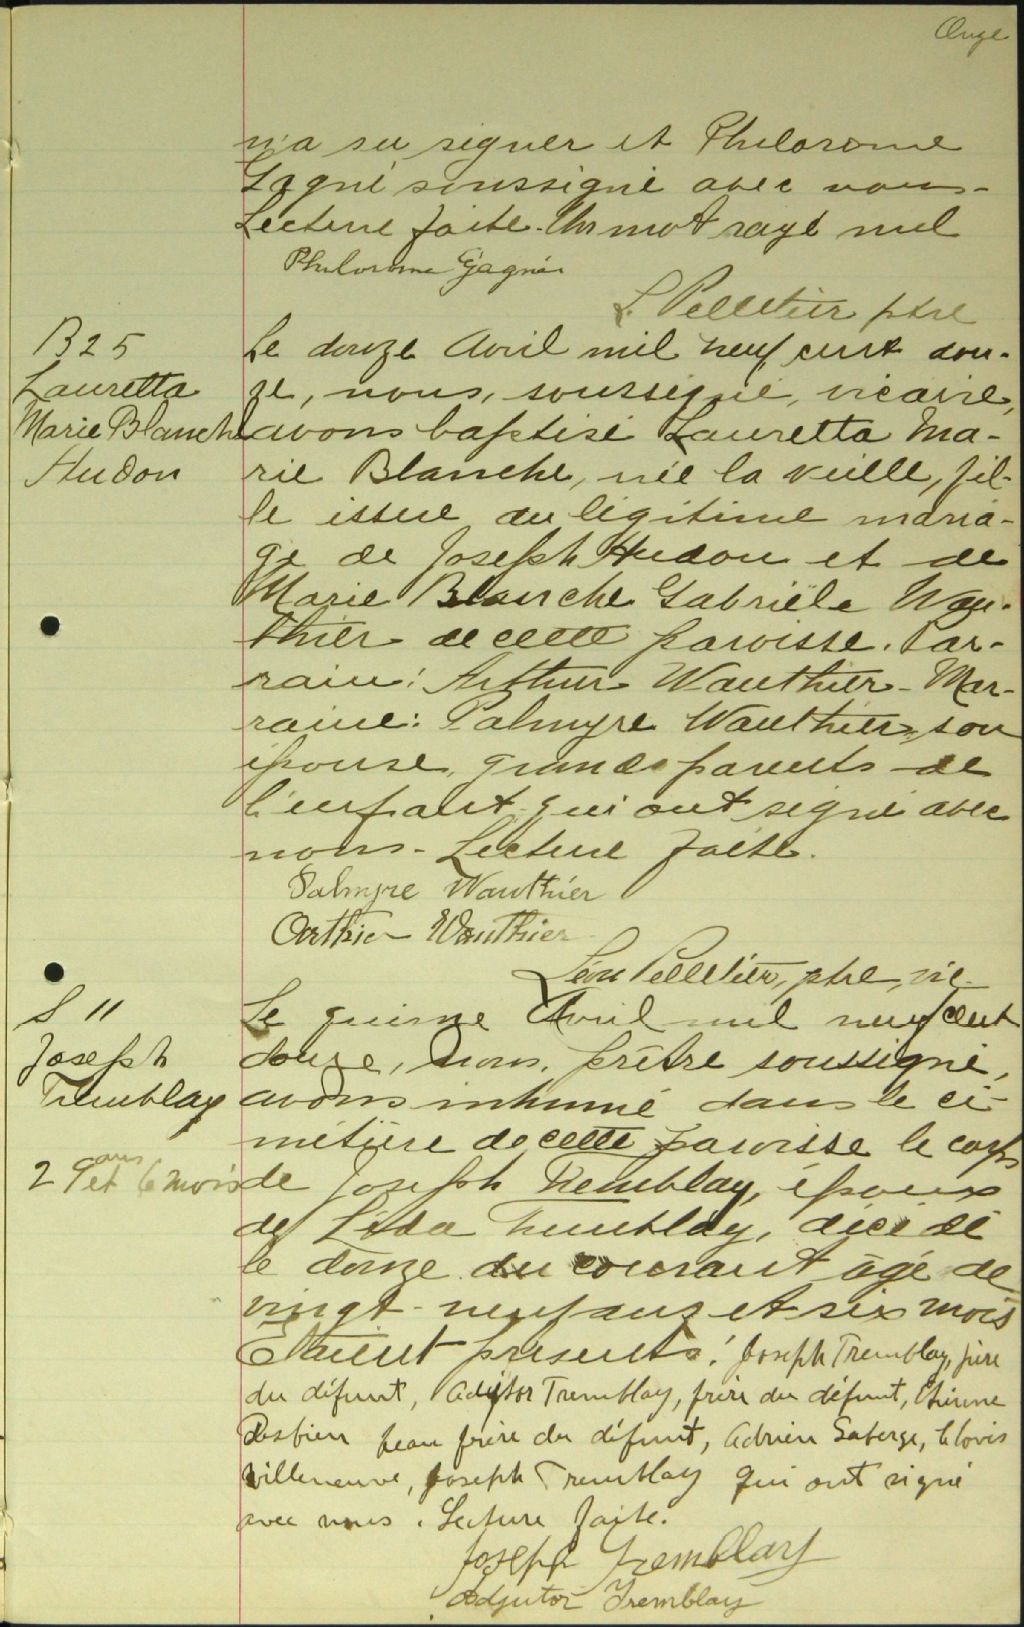 Onze
n'a su signer et Philorome
Gagné soussigné avec nous-
Lecture faite. Un mot rayé nul
Philorome Gagné
L. Pelletier ptre
B 25
Lauretta
Marie Blanche
Hudon
Le douze Avril mil neuf cent dou-
ze, nous, soussigné, vicaire,
avons baptisé Lauretta Ma-
rie Blanche, née la veille, fil-
le issue du légitime maria-
ge de Joseph Hudon et de
Marie Blanche Gabrièle Wau-
thier de cette paroisse. Par-
rain: Arthur Wauthier - Mar-
raine: Palmyre Wauthier, son
épouse, grands parents de
l'enfant qui ont signé avec
nous - Lecture faite.
Palmyre Wauthier
Arthur Wauthier
Léon Pelletier, ptre, vic
S 11
Joseph
Tremblay
29 ans et 6 mois
Le quinze Avril mil neuf cent
douze, nous, prêtre soussigné,
avons inhumé dans le ci-
métière de cette paroisse le corps
de Joseph Tremblay, époux
de Lida Tremblay, décédé
le douze du courant âgé de
vingt-neuf ans et six mois
Etaient présents: Joseph Tremblay, père
du défunt, Adjutor Tremblay, frère du défunt, Etienne
Desbien beau frère du défunt, Adrien Laberge, Clovis
Villeneuve, Joseph Tremblay qui ont signé
avec nous. Lecture faite.
Joseph Tremblay
Adjutor Tremblay